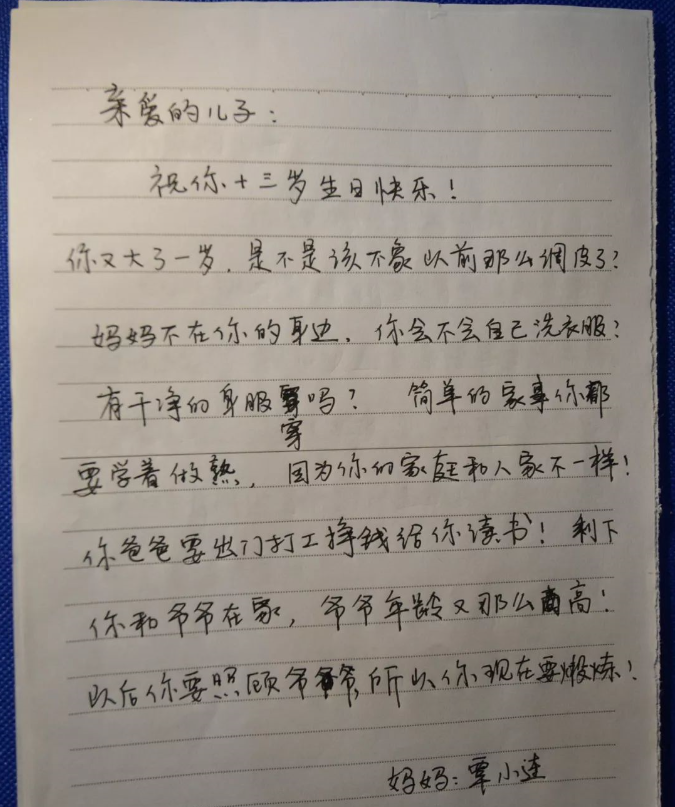 亲爱的儿子:
祝你十三岁生日快乐!
你又大了一岁.是不是该不象以前那么调皮了?
妈妈不在你的身边.你会不会自己洗衣服?
有干净的身服穿吗? 简单的家事你都
要学着做熟,因为你的家庭和人家不一样!
你爸爸要出门打工挣钱给你读书!剩下
你和爷爷在家,爷爷年龄又那么高!
以后你要照顾爷爷,所以你现在要煅炼!
妈妈:覃小连